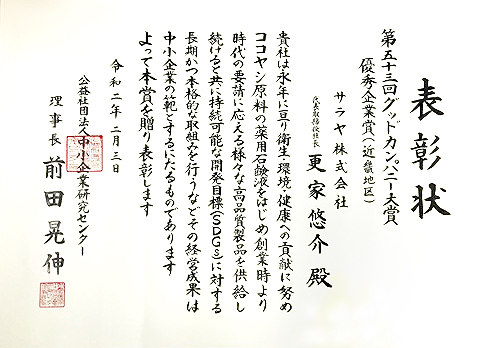 表彰状
第五十三回グッドカンパニー大賞
優秀企業賞（近畿地区）
サラヤ株式会社
代表取締役社長 更家悠介殿
貴社は永年に亘り衛生・環境・健康への貢献に努め
ココヤシ原料の薬用石鹸液をはじめ創業時より
時代の要請に応える様々な高品質製品を供給し
続けると共に持続可能な開発目標(SDGs)に対する
長期かつ本格的な取組みを行うなどその経営成果は
中小企業の範とするにたるものであります
よって本賞を贈り表彰します
令和二年二月三日
公益社団法人中小企業研究センター
理事長 前田晃伸